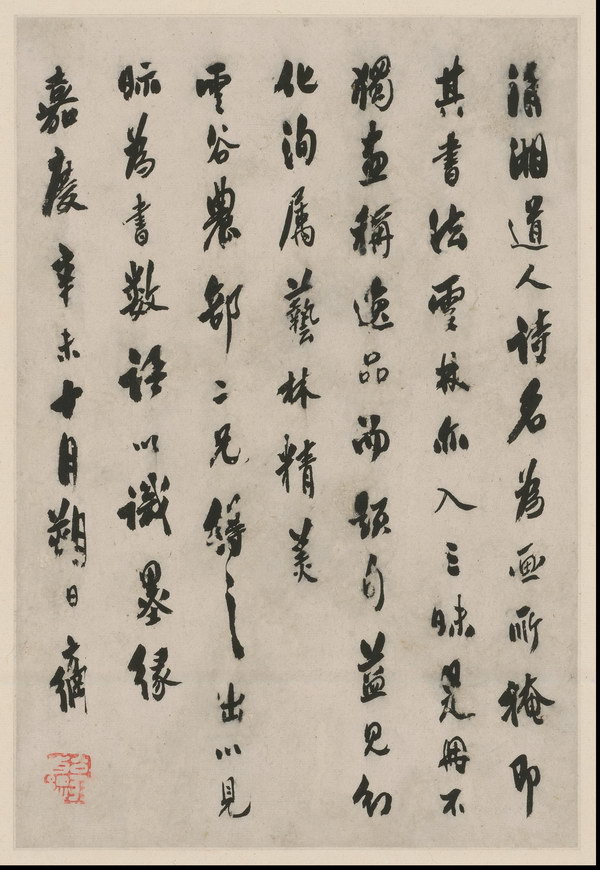 清湘道人詩名為画所掩即
其書法亦入三昧是冊不
獨畫稱逸品而題句益見幻
化洵屬藝林精美
雲谷農部二兄得之出以見
眎為書數語以識墨緣
嘉慶辛未十月朔日